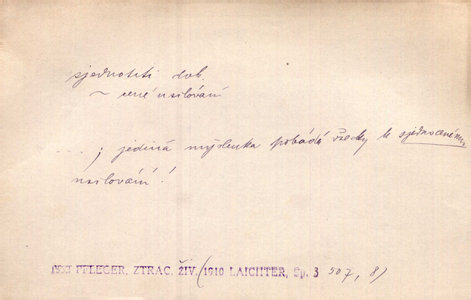 sjednotiti dok.
~ cené usilování
...; jediná myšlenka pobádá všecky k sjednocenému
usilování!
PFLEGER, ZTRAC. ŽIV. (1910 LAICHTER, Sp. 3 507, 8)